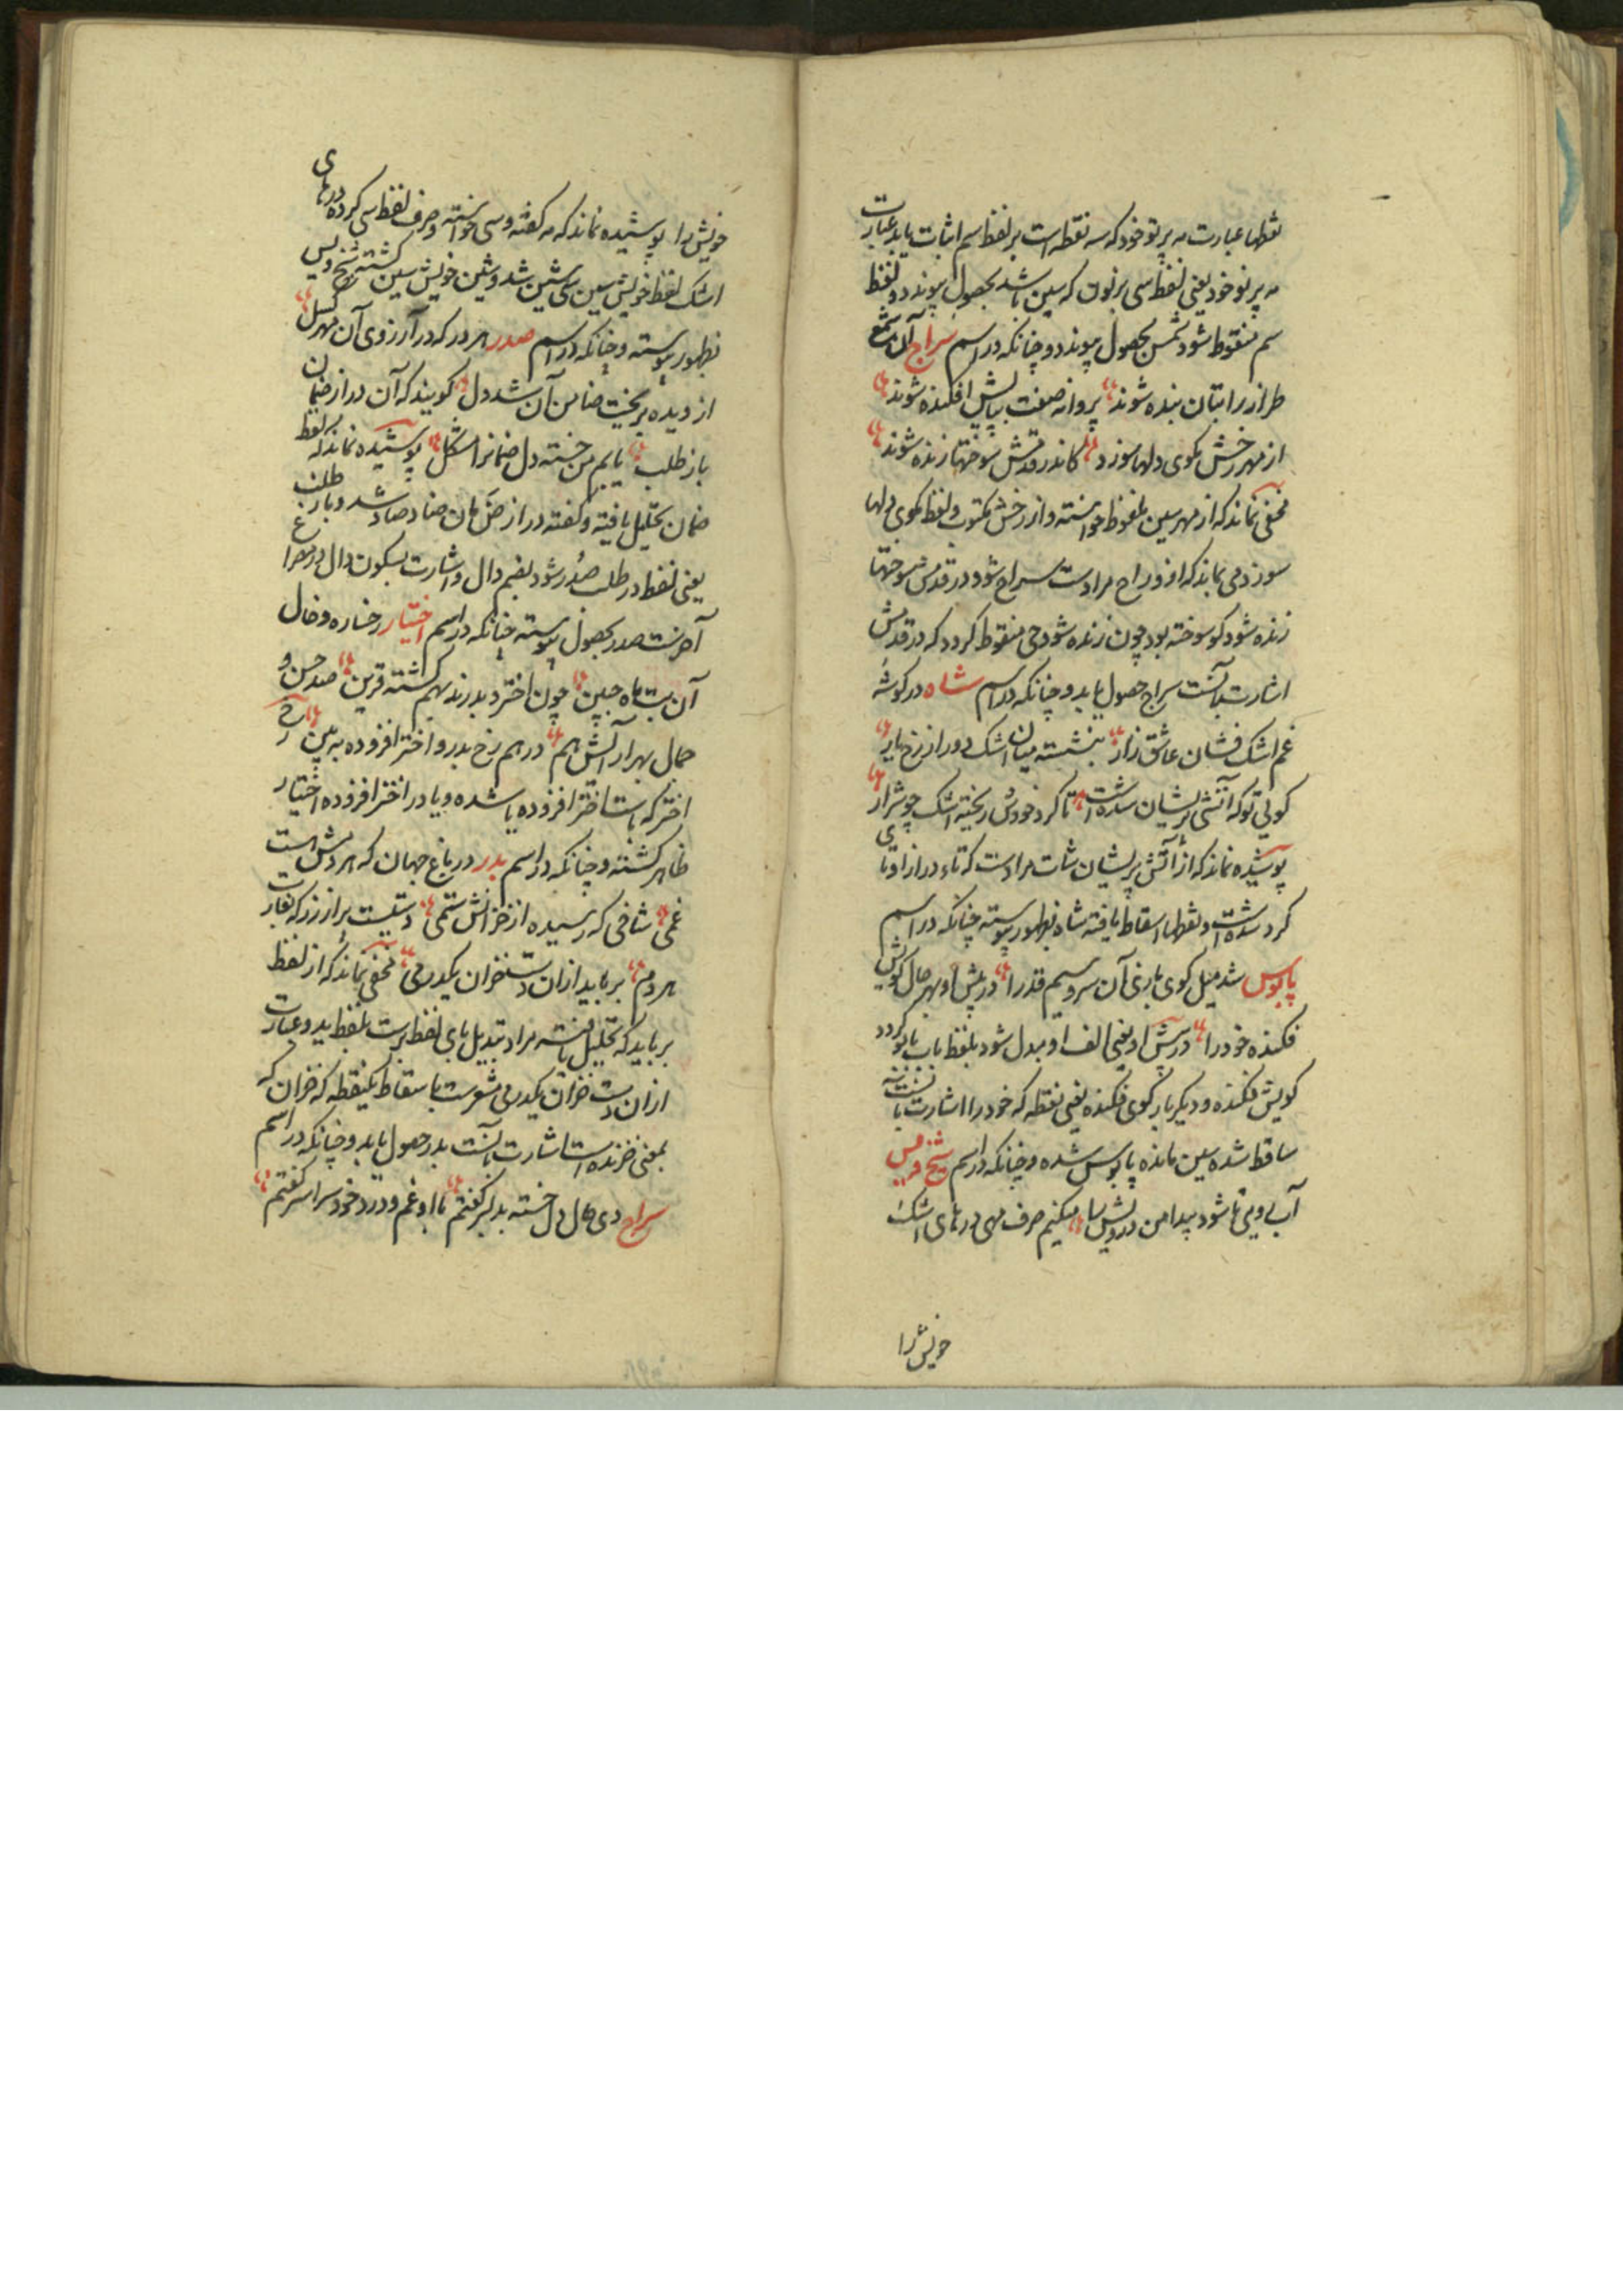 نقطها عبارت مه پرتو خود که سه نقطه است بر لفظ اسم اثبات یابد عبارت
مه پرتو خود یعنی لفظ سی بر نون که سین باشد بحصول پیوندد و لفظ
سم منقوط شود شمس بحصول پیوندد و چنانکه در اسم سراج آن شمع
طراز را بتان بنده شوند پروانه صفت بپایش افکنده شوند
از مهر رخش بکوی دلها سوزد کاندر قدمش سوختها زنده شوند
مخفی نماند که از مهر سین ملفوظ خواسته و از رخش مکتوب و لفظ بکوی دلها
سوزد می نماید که از و راح مرادست سراح شود و در قدمش سوختها
زنده شود کو سوخته بود چون زنده شود جی منقوط گردد که در قدمش
اشارت بآنست سراج حصول یابد و چنانکه در اسم شاه در گوشه
غم اشک فشان عاشق زار بنشسته میان اشک دور از رخ یار
گویی تو که آتشی پریشان شده است تا گرد خودش ریخته اشک چو شرار
پوشیده نماند که از آتش پریشان شات مرادست که تاء دراز او تای
گرد شده است و نقطها اسقاط یافته شاه بظهور پیوسته چنانکه در اسم
پابوس شد میل کوی بازی آن سرو سیم قد را در پیش او بهر حال گویش
فکنده خود را در پیش او یعنی الف او مبدل شود بلفظ باب بابو گردد
گویش فکنده و دیگر بار گوی فکنده یعنی نقطه که خود را اشارت بآنست
ساقط شده سین مانده پابوس شده و چنانکه در اسم شیخ ویس
آب رویی تا شود پیدا من درویش را میکنیم صرف مهی درهای اشک
خویش را
خویش را پوشیده نماند که مه گفته و سی خواسته و صرف لفظ سی کرده درهای
اشک لفظ خویش سین سی شین شد و شین خویش سین گشته شیخ ویس
بظهور پیوسته و چنانکه در اسم صدر هر در که در آرزوی آن مهر گسل
از دیده بریخت ضامن آن شد دل گویند که آن دراز ضمان
باز طلب یابم من خسته دل ضمانرا مشکل پوشیده نماند که لفظ
ضمان تحلیل یافته و گفته دراز ضَ مان ضاد صاد شد و باز طلب
یعنی لفظ در طلب صُدر شود بضم دال و اشارت بسکون دال در مصراع
آخرست صدر بحصول پیوسته چنانکه در اسم اختیار رخساره و خال
آن بت ماه جبین چون اختر و بدرند بهم گشته قرین صد حسن و
جمال بهر آرایش هم در هم رخ بدر و اختر افزوده ببین رخ
اختر که است اختر افزوده یا شده و یا در اختر افزوده اختیار
ظاهر گشته و چنانکه در اسم بدر در باغ جهان که هر دمش است
غمی شاخی که رسیده از خزانش ستمی دستیست پر از زر که بغارت
هر دم برباید ازان دست خزان یکدرمی مخفی نماند که از لفظ
برباید که تحلیل یافته مراد تبدیل بای لفظ برست بلفظ ید و عبارت
ازان دست خزان یکدرمی مشعرست باسقاط یکنقطه که خزان که
بمعنی خزنده است اشارت بآنست بدر حصول یابد و چنانکه در اسم
سراج دی حال دل خسته بدلبر گفتم با او غم و درد خود سراسر گفتم